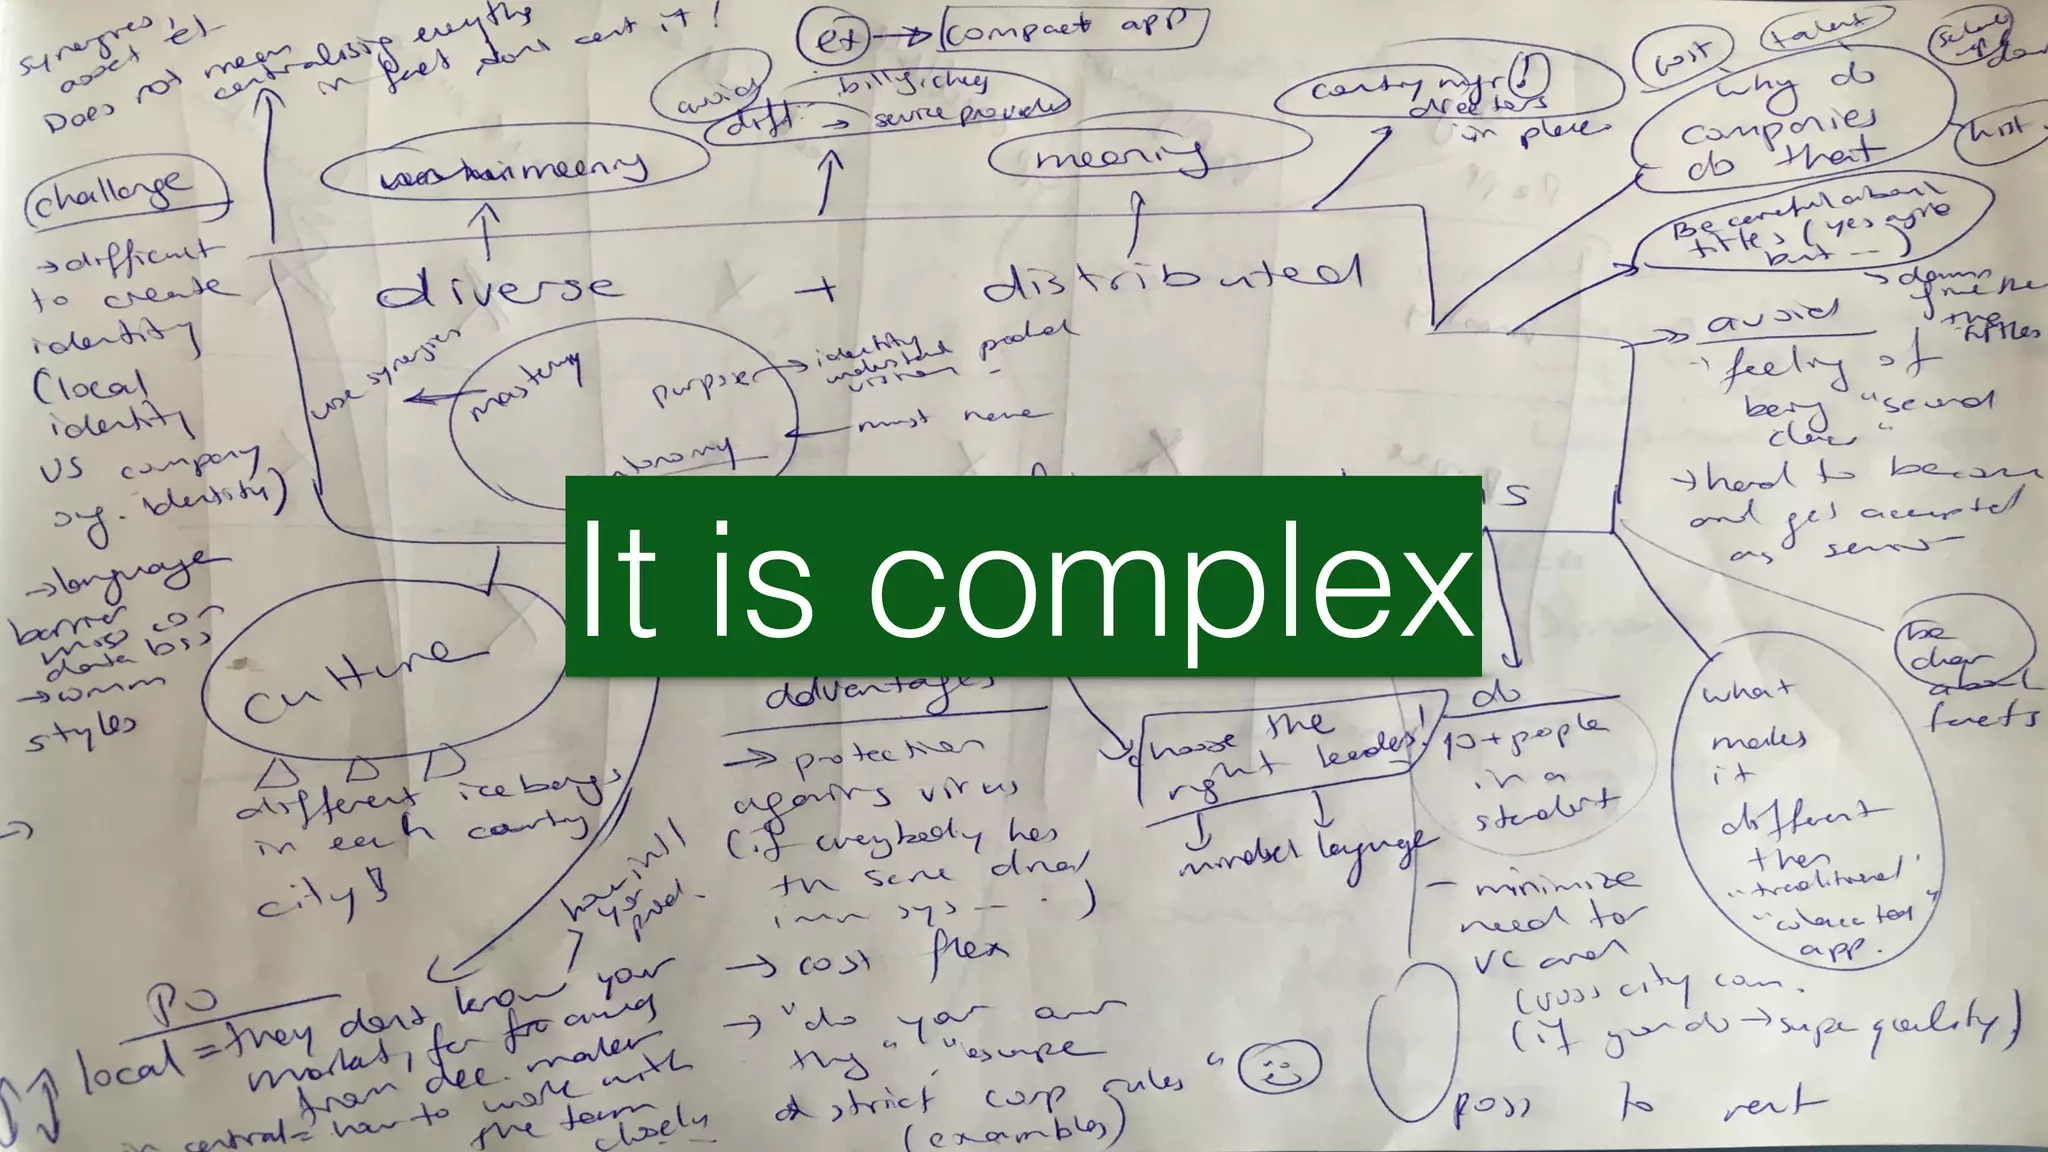 synergies,
asset
Does not mean
centralising everything
in fact dont cent it!
ex → compact app
avoid
diff → service provider
meaning
meaning
country mgr!
directors
in place
cost
talent
why do
companies
do that
Be careful about
titles (yes agree
but --)
challenge
→ difficult
to create
identity
(local
identity
VS company
org. identity)
→ language
barrier
data loss
→ comm
styles
diverse + distributed
use synergies
mastery
purpose → identity
understand
vision
← must have
avoid
feeling of
being "second
class"
→ hard to become
and get accepted
as senior
the titles
It is complex
culture
different icebergs
in each country
city!!
advantages
→ protection
against virus
(if everybody has
the same dna/
imm sys --- )
→ cost flex
→ "do your own
thing", "escape
strict corp rules"
(examples)
choose the
right leaders!
mindset language
do
10+ people
in a
- minimize
need for
VC and
cross city com.
(if you do → super quality)
poss to rent
be
clear
about
what
makes
it
different
then
"traditional"
app.
PO
local = they dont know your
market, far
from dec. maker
in central = how to work with
the team
closely